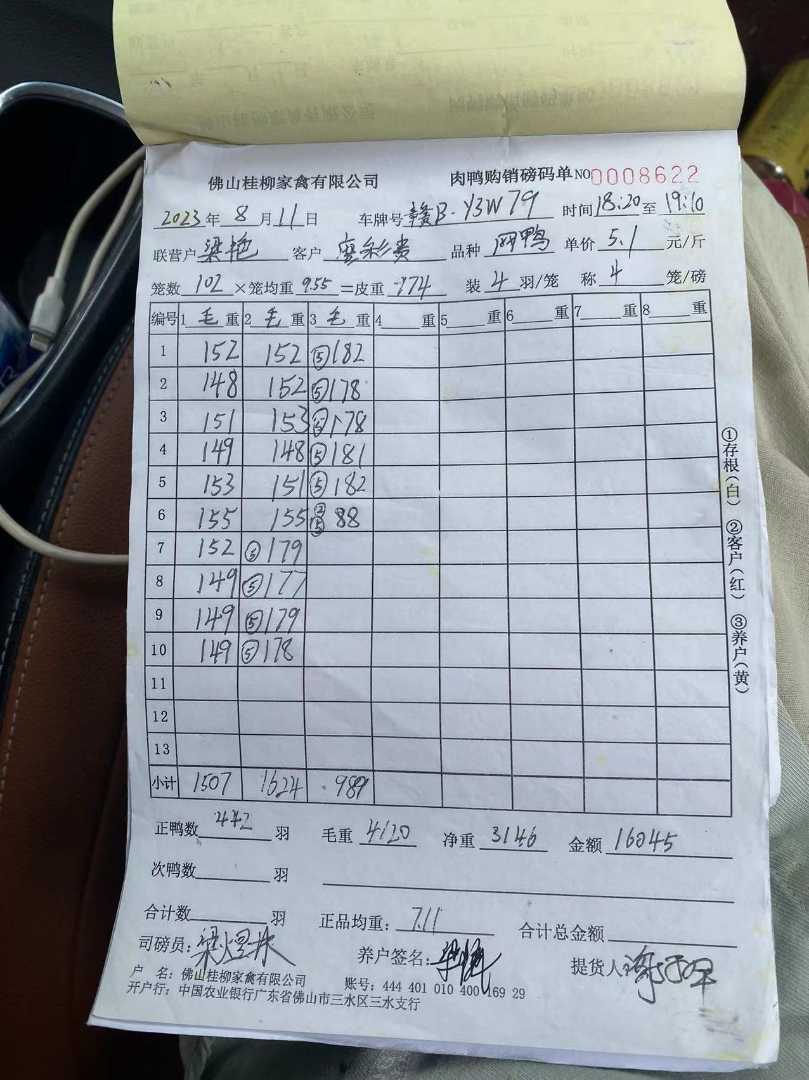 佛山桂柳家禽有限公司 肉鸭购销磅码单 NO 0008622
2023年 8月 11日 车牌号 赣B·Y3W79 时间 18:20 至 19:10
联营户 梁艳 客户 廖彩贵 品种 网鸭 单价 5.1 元/斤
笼数 102 ×笼均重 9.55 =皮重 -974 装 4 羽/笼 称 4 笼/磅
编号 1 毛 重 2 毛 重 3 毛 重 4 重 5 重 6 重 7 重 8 重
1 152 152 ⑤182
2 148 152 ⑤178
3 151 153 ⑤178
4 149 148 ⑤181
5 153 151 ⑤182
6 155 155 88
7 152 ⑤179
8 149 ⑤177
9 149 ⑤179
10 149 ⑤178
11
12
13
小计 1507 1624 989
正鸭数 442 羽 毛重 4120 净重 3146 金额 16045
次鸭数 羽
合计数 羽 正品均重: 7.11 合计总金额
司磅员: 梁煜林 养户签名: 梁艳 提货人:
户 名: 佛山桂柳家禽有限公司 账号: 444 401 010 400 169 29
开户行: 中国农业银行广东省佛山市三水区三水支行
①存根(白) ②客户(红) ③养户(黄)